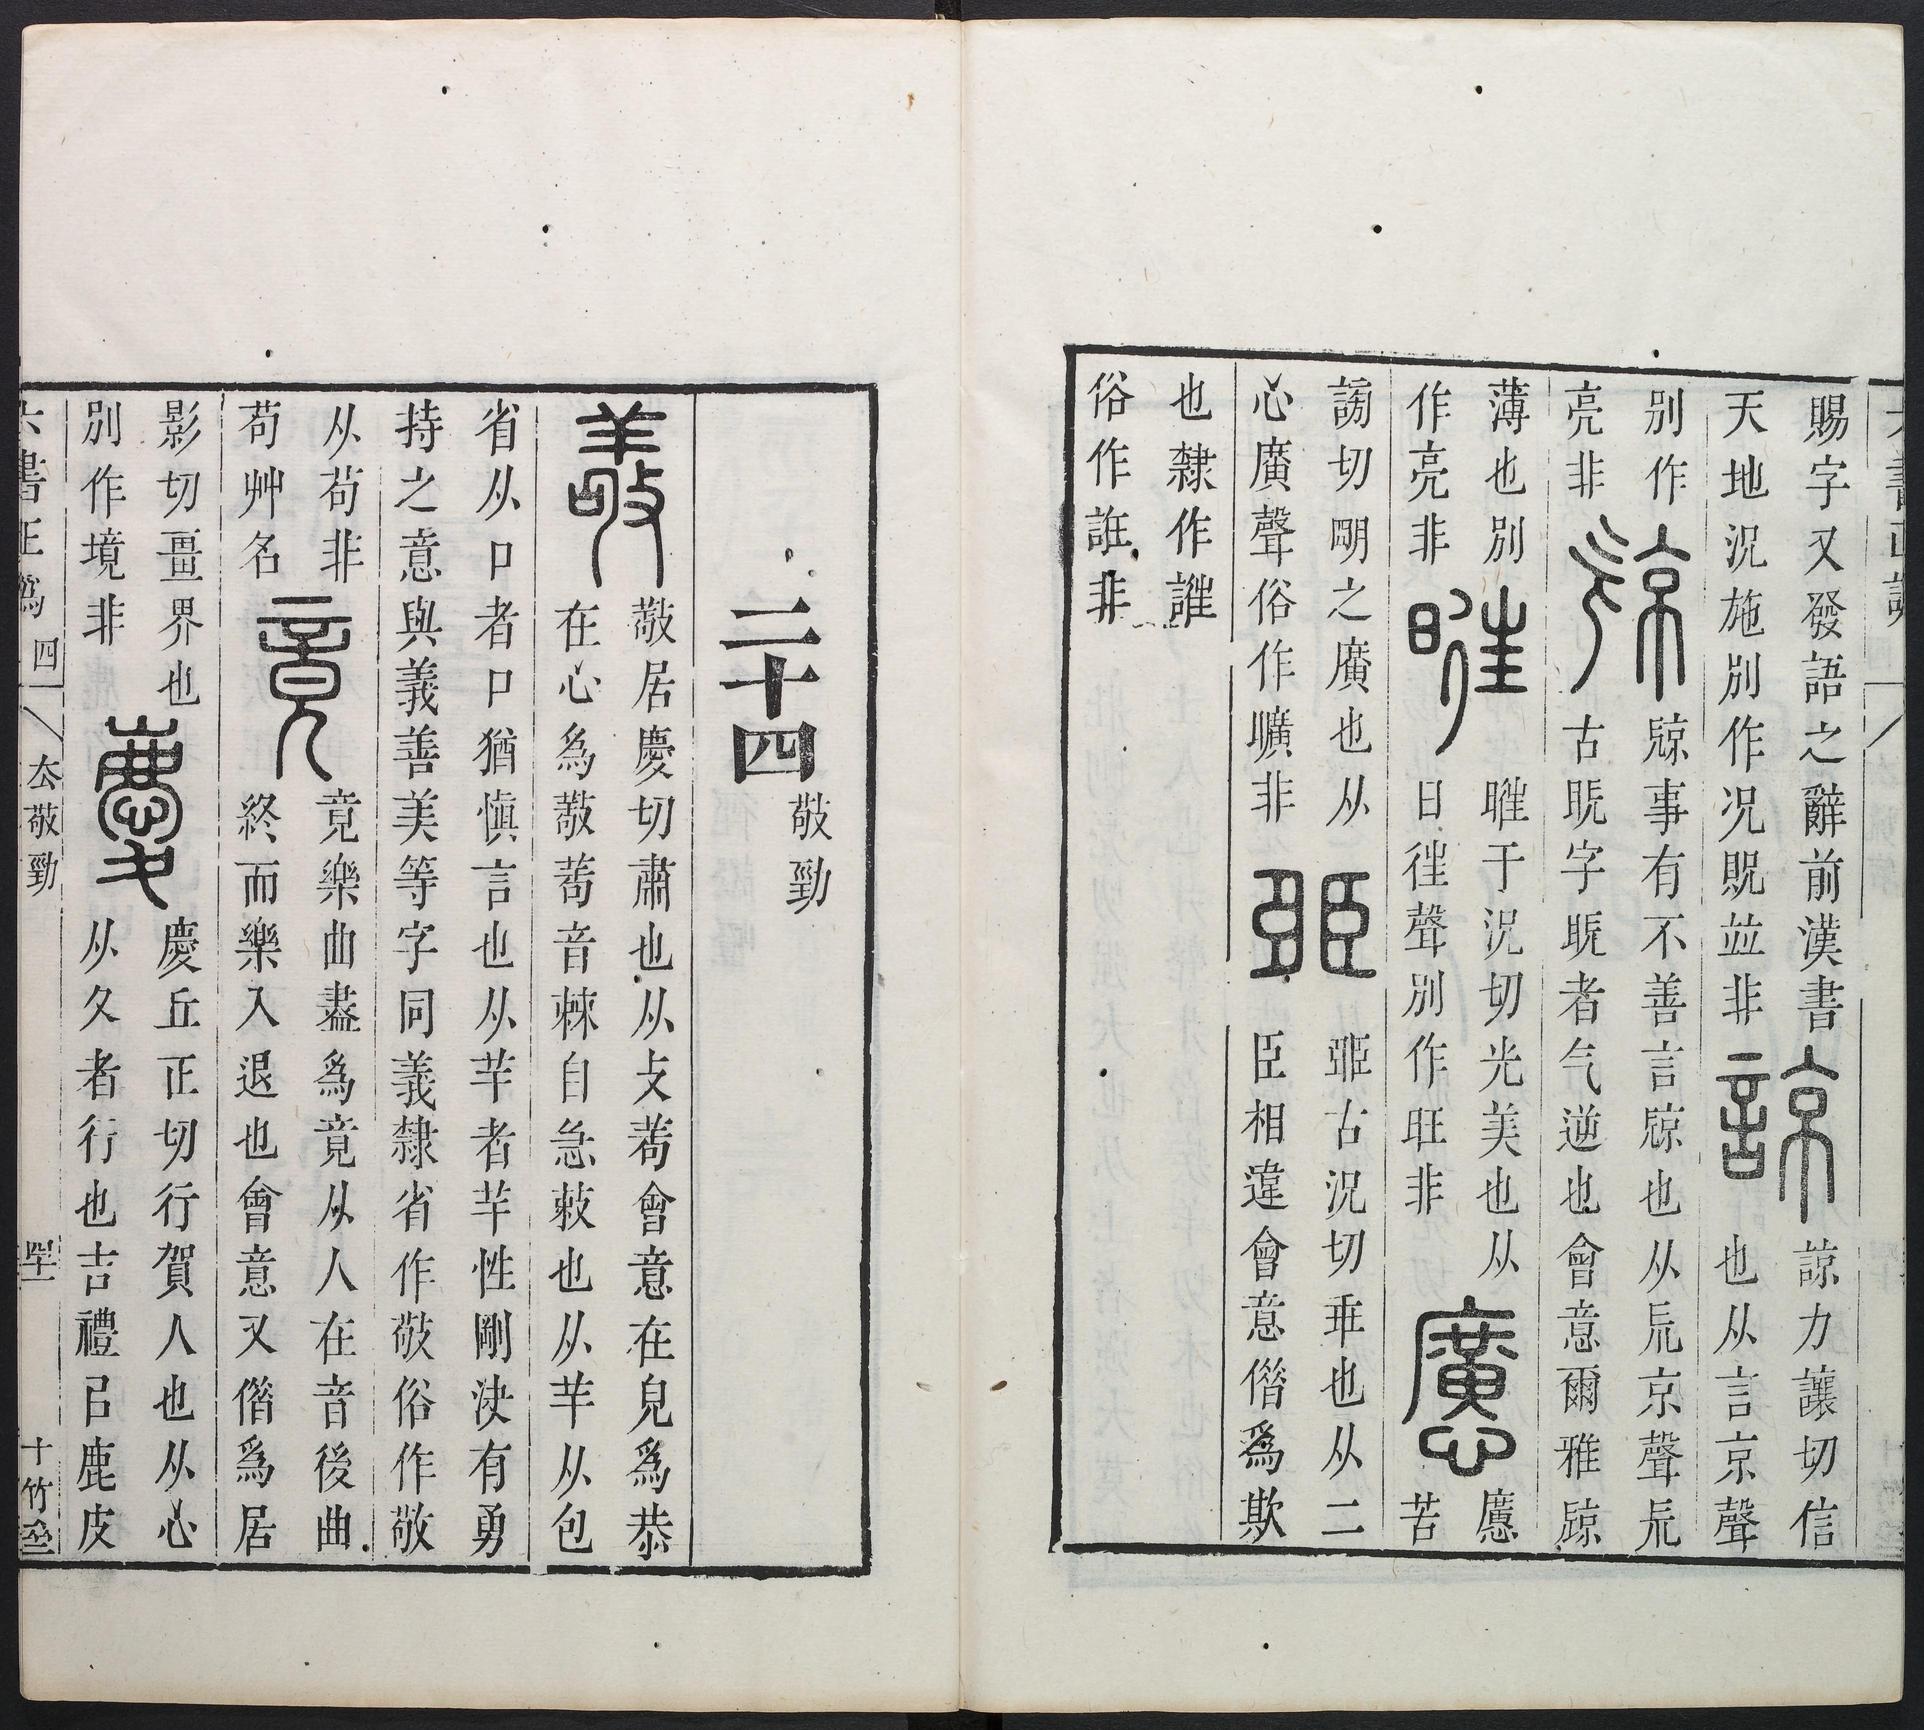 賜字又發語之辭前漢書
天地況施別作況貺並非
諒
諒力讓切信
也从言京聲
別作
亮非
㹁
事有不善言㹁也从旡京聲旡
古旣字旣者气逆也會意爾雅㹁
薄也別
作亮非
暀
暀于況切光美也从
日徃聲別作旺非
懬
懬
苦
謗切朙之廣也从
心廣聲俗作曠非
𦣞
古況切乖也从二
臣相違會意偕為欺
也隸作誑
俗作誑非
二十四
敬勁
敬
敬居慶切肅也从攴茍會意在皃為恭
在心為敬茍音棘自急敕也从羊从包
省从口者口猶慎言也从羊者羊性剛決有勇
持之意與義善美等字同義隸省作敬俗作敬
从苟非
苟艸名
竟
竟樂曲盡為竟从人在音後曲
終而樂人退也會意又偕為居
影切畺界也
別作境非
慶
慶丘正切行賀人也从心
从夊者行也吉禮㠯鹿皮
六書正譌
四
厺敬勁
四十一
十竹齋